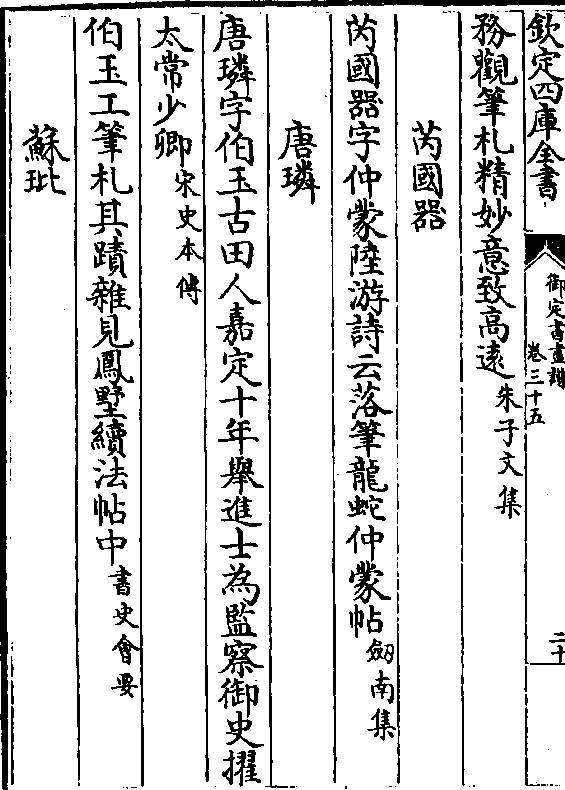 欽定四庫全書
御定書畫譜
卷三十五
二十
務觀筆札精妙意致高遠朱子文集
芮國器
芮國器字仲蒙陸游詩云落筆龍蛇仲蒙帖劔南集
唐璘
唐璘字伯玉古田人嘉定十年舉進士為監察御史擢
太常少卿宋史本傳
伯玉工筆札其蹟雜見鳳墅續法帖中書史會要
蘇玭